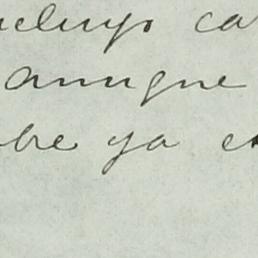 cluyo ca
aunque
be ya e